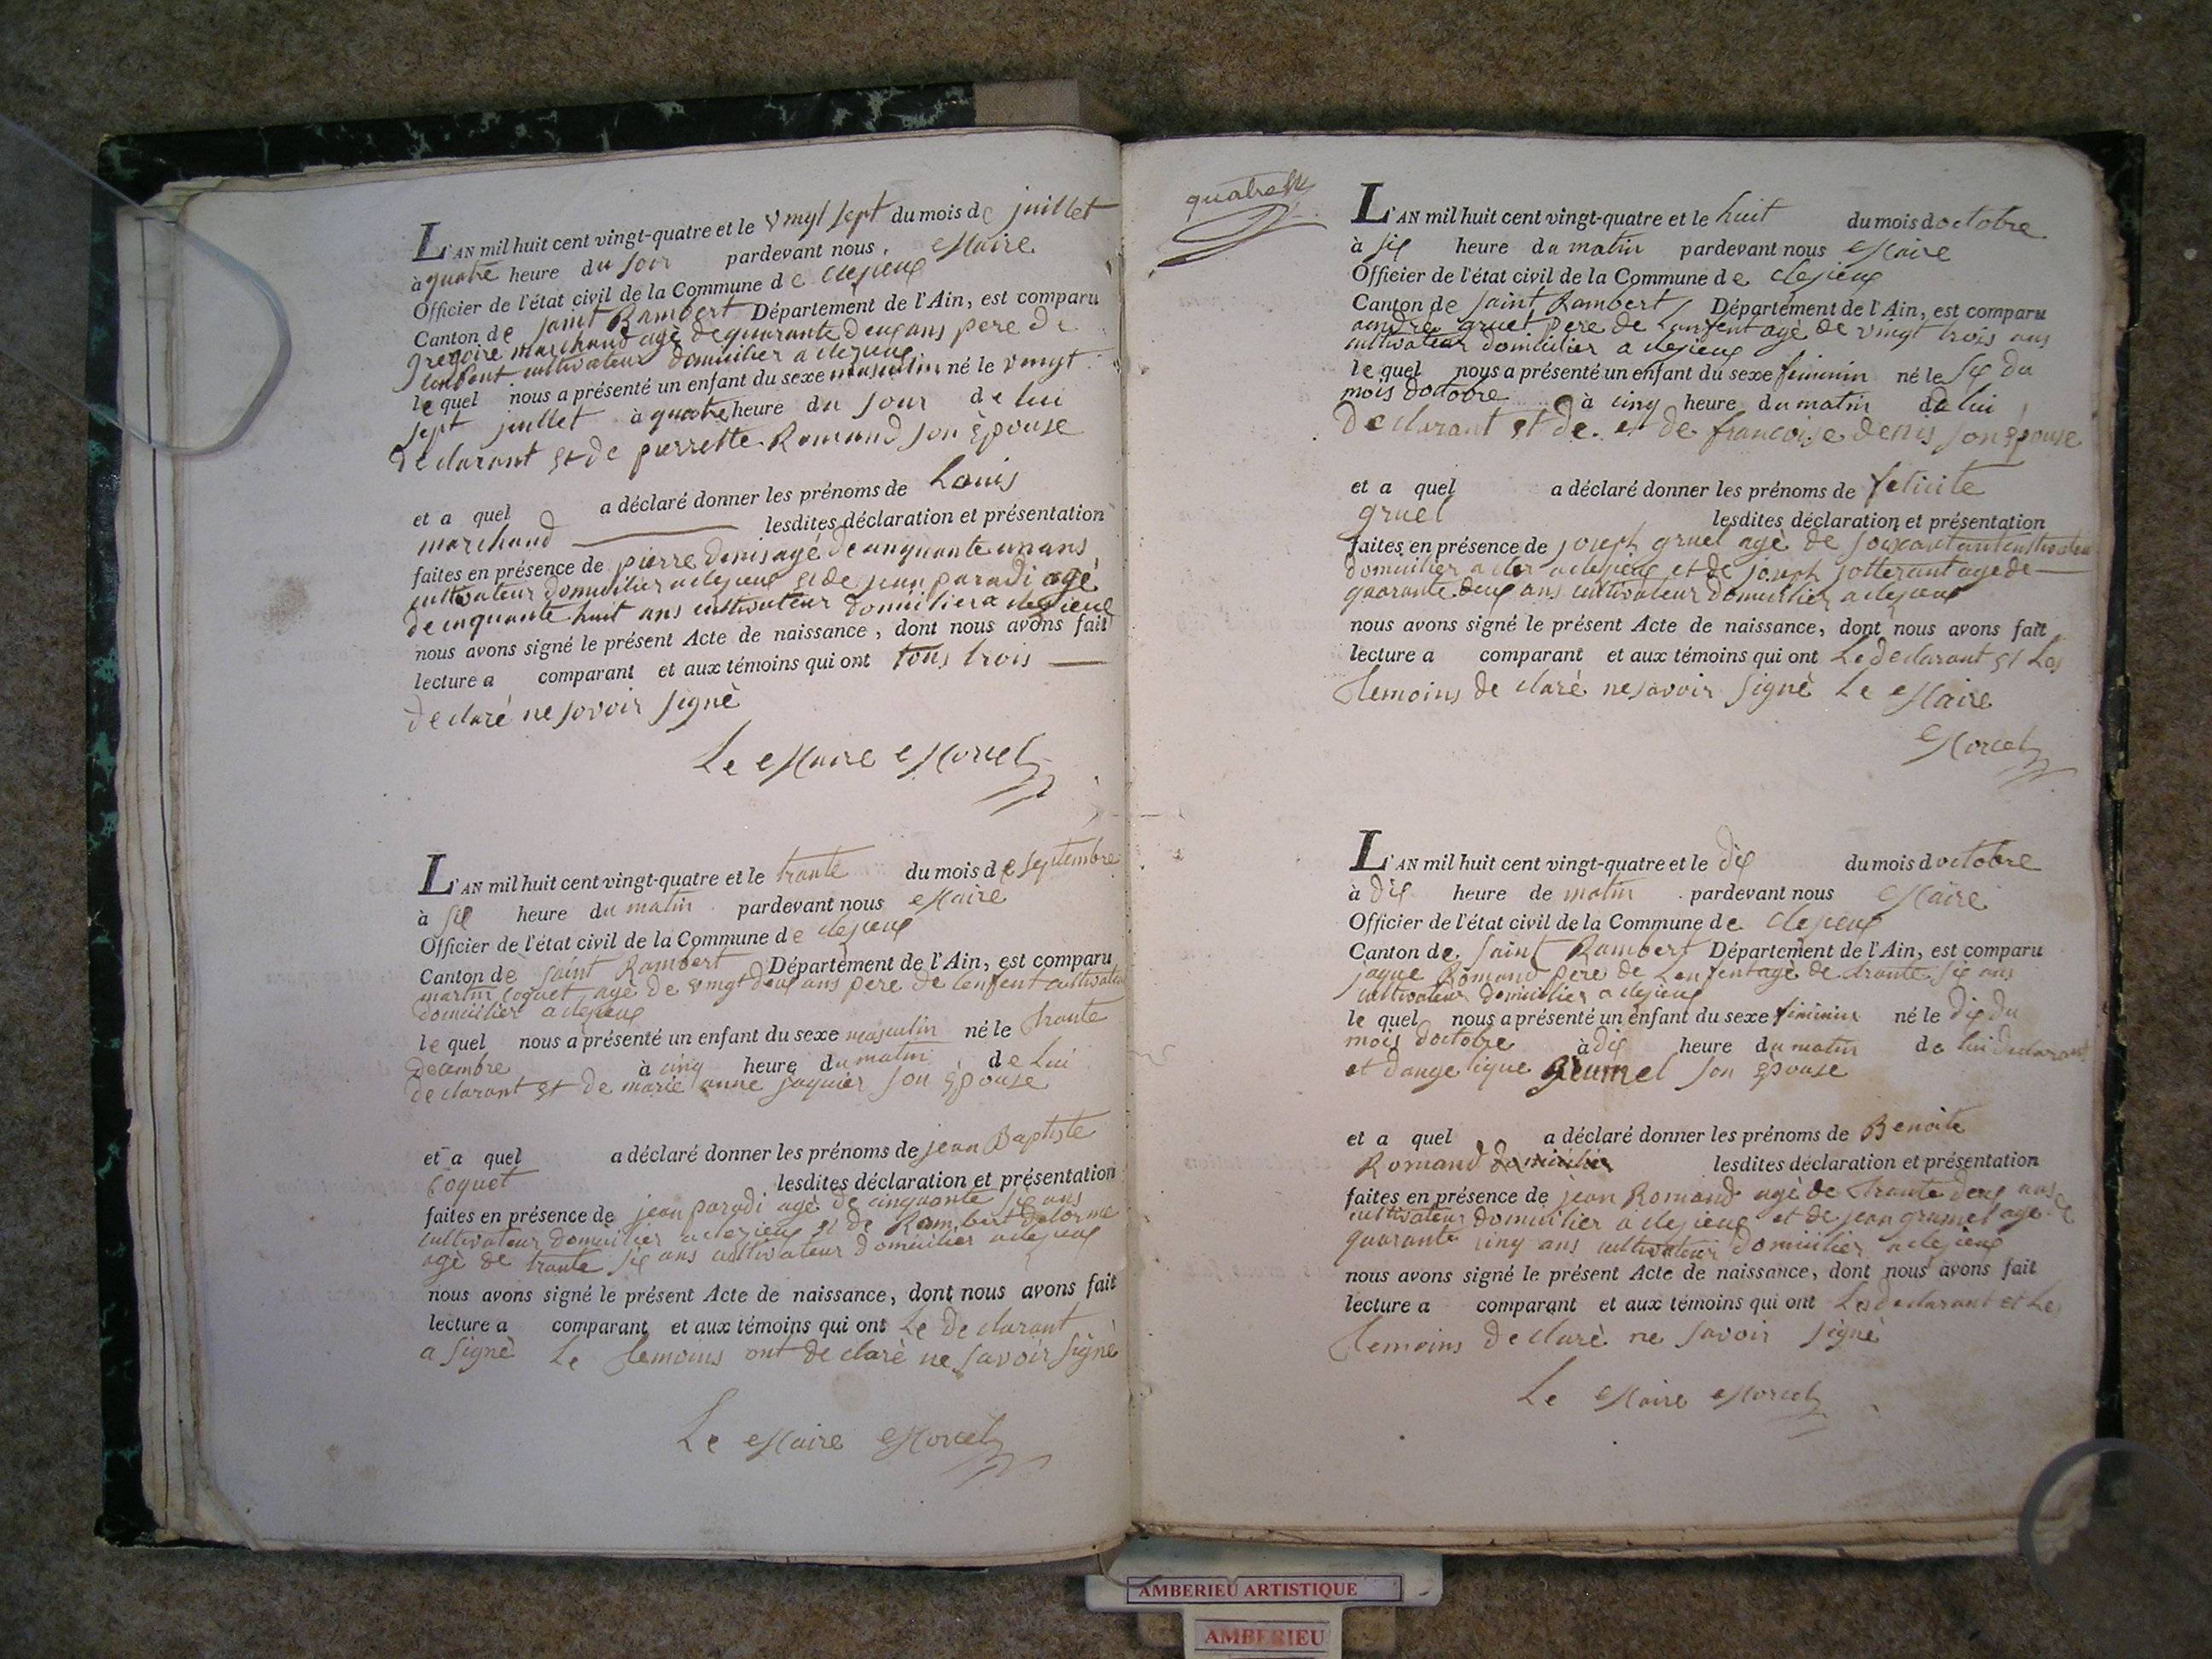 L'AN mil huit cent vingt-quatre et le vingt sept du mois de juillet
à quatre heure du soir pardevant nous, Maire
Officier de l'état civil de la Commune de clezieux
Canton de saint Rambert Département de l'Ain, est comparu
gregoire marchand agè de quarante deux ans pere de
lenfent cultivateur domicilier a clezieux
le quel nous a présenté un enfant du sexe masculin né le vingt
sept juillet à quatre heure du jour de lui
declarant et de pierrette Romand son Epouse
et a quel a déclaré donner les prénoms de Louis
marchand lesdites déclaration et présentation
faites en présence de pierre denis agé de cinquante un ans
cultivateur domicilier a clezieux et de jean paradi agè
de cinquante huit ans cultivateur domicilier a clezieux
nous avons signé le présent Acte de naissance, dont nous avons fait
lecture a comparant et aux témoins qui ont tous trois
declaré ne savoir signè
Le Maire Morcel
L'AN mil huit cent vingt-quatre et le trante du mois de septembre
à six heure du matin pardevant nous Maire
Officier de l'état civil de la Commune de clezieux
Canton de saint Rambert Département de l'Ain, est comparu
martin Coquet, agè de vingt deux ans pere de lenfent cultivateur
domicilier a clezieux
le quel nous a présenté un enfant du sexe masculin né le trante
decembre à cinq heure du matin de Lui
declarant et de marie anne jaquier son Epouse
et a quel a déclaré donner les prénoms de jean Baptiste
Coquet lesdites déclaration et présentation
faites en présence de jean paradi agè de cinquante six ans
cultivateur domicilier a clezieux et de Rambert delorme
agè de trante six ans cultivateur domicilier a clezieux
nous avons signé le présent Acte de naissance, dont nous avons fait
lecture a comparant et aux témoins qui ont Le declarant
a signè Le temoins ont declarè ne savoir signè
Le Maire Morcel
quatre
L'AN mil huit cent vingt-quatre et le huit du mois doctobre
à six heure du matin pardevant nous Maire
Officier de l'état civil de la Commune de clezieux
Canton de saint Rambert Département de l'Ain, est comparu
andre gruel pere de Lenfent agè de vingt trois ans
cultivateur domicilier a clezieux
le quel nous a présenté un enfant du sexe feminin né le six du
mois doctobre à cinq heure du matin de lui
declarant et de et de francoise denis son Epouse
et a quel a déclaré donner les prénoms de felicite
gruel lesdites déclaration et présentation
faites en présence de joseph gruel agè de soixante cultivateur
domicilier a clezieux et de joseph jotterant age de
quarante deux ans cultivateur domicilier a clezieux
nous avons signé le présent Acte de naissance, dont nous avons fait
lecture a comparant et aux témoins qui ont Le declarant et Les
temoins de claré ne savoir signè Le Maire
Morcel
L'AN mil huit cent vingt-quatre et le dix du mois doctobre
à dix heure de matin pardevant nous Maire
Officier de l'état civil de la Commune de clezieux
Canton de saint Rambert Département de l'Ain, est comparu
jaque Romand pere de Lenfent agè de trante six ans
cultivateur domicilier a clezieux
le quel nous a présenté un enfant du sexe feminin né le dix du
mois doctobre à dix heure du matin de lui declarant
et dangelique Grumel son Epouse
et a quel a déclaré donner les prénoms de Benoite
Romand domicilier lesdites déclaration et présentation
faites en présence de jean Romand agè de trante deux ans
cultivateur domicilier a clezieux et de jean grumel age de
quarante cinq ans cultivateur domicilier a clezieux
nous avons signé le présent Acte de naissance, dont nous avons fait
lecture a comparant et aux témoins qui ont Le declarant et Les
temoins declarè ne savoir signè
Le Maire Morcel
AMBERIEU ARTISTIQUE
AMBERIEU